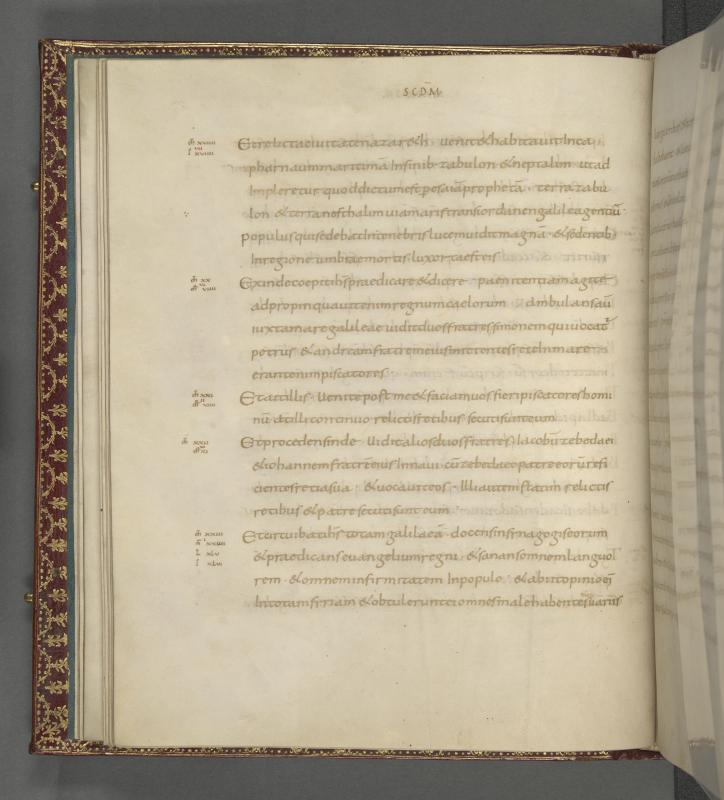 SCDM
Et relicta ciuitate nazareth · uenit & habitauit Inca
pharnaum maritimā Infinib· zabulon & neptalim · ut ad
Impleretur quod dictum est per esaiā prophetā · terra zabu
lon & terra nepthalim uia maris trans iordanen galileae gentiū ·
Populus qui sedebat Intenebris lucem uidit magnā · & sedentib·
Inregione umbrae mortis · lux orta est eis
Exinde coepit ihs praedicare & dicere · paenitentiam agite
adpropinquauit enim regnum caelorum · ambulans aū
iuxta mare galileae uidit duos fratres simonem qui uocat
petrus & andream fratrem eius mittentes rete In mare
erant enim piscatores ·
Et ait illis · Uenite post me & faciam uos fieri piscatores homi
nū · at illi continuo relictis retibus secuti sunt eum
Et procedens inde · Uidit alios duos fratres Iacobū zebedaei
& iohannem fratrē eius In naui cū zebedaeo patre eorū refi
cientes retia sua · & uocauit eos · Illi autem statim relictis
retibus & patre secuti sunt eum
Et circuibat ihs totam galilaeā · docens in synagogis eorum
& praedicans euangelium regni · & sanans omnem languo
rem · & omnem infirmitatem Inpopulo · & abiit opinio ei
Intotam syriam & obtulerunt ei omnes male habentes uariis